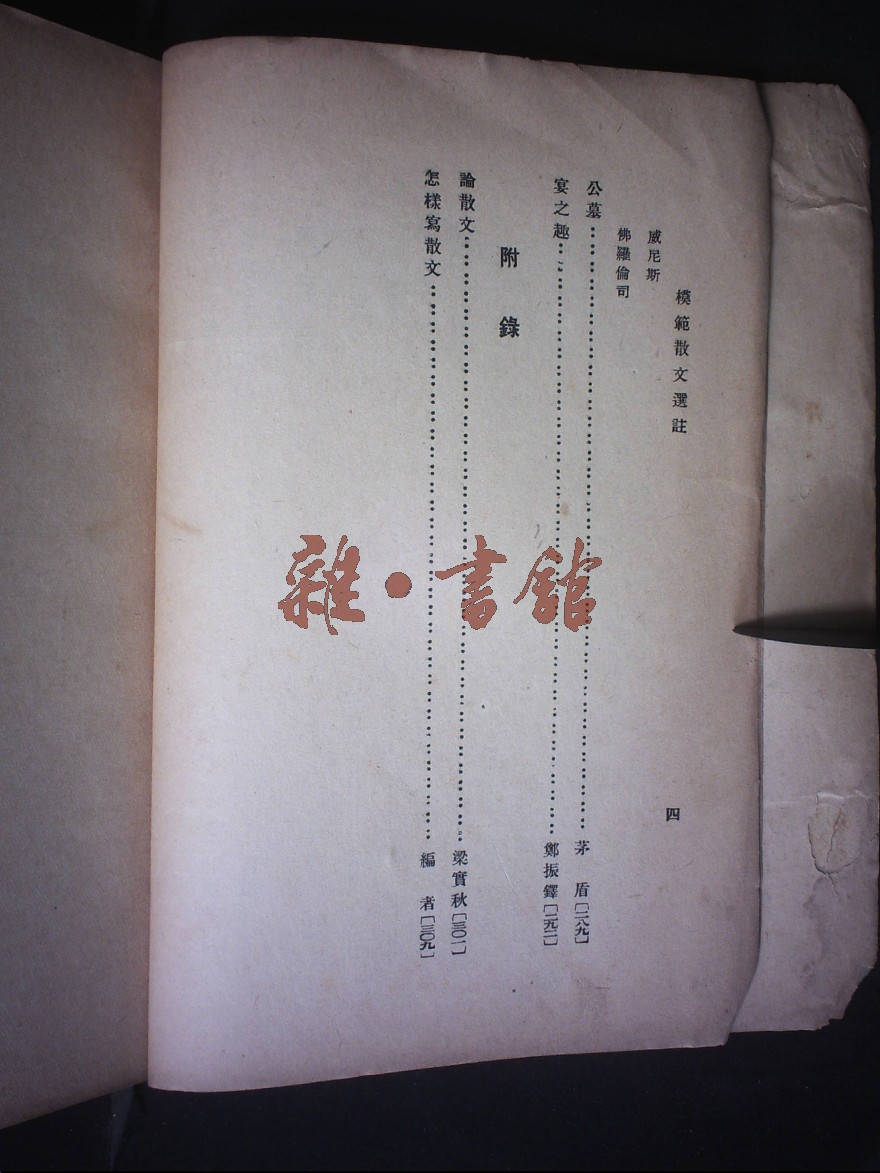 模範散文選註
四
威尼斯
佛羅倫司
公墓……茅盾[二八九]
宴之趣……鄭振鐸[二九二]
附錄
論散文……梁實秋[三〇一]
怎樣寫散文……編者[三〇九]
雜·書館